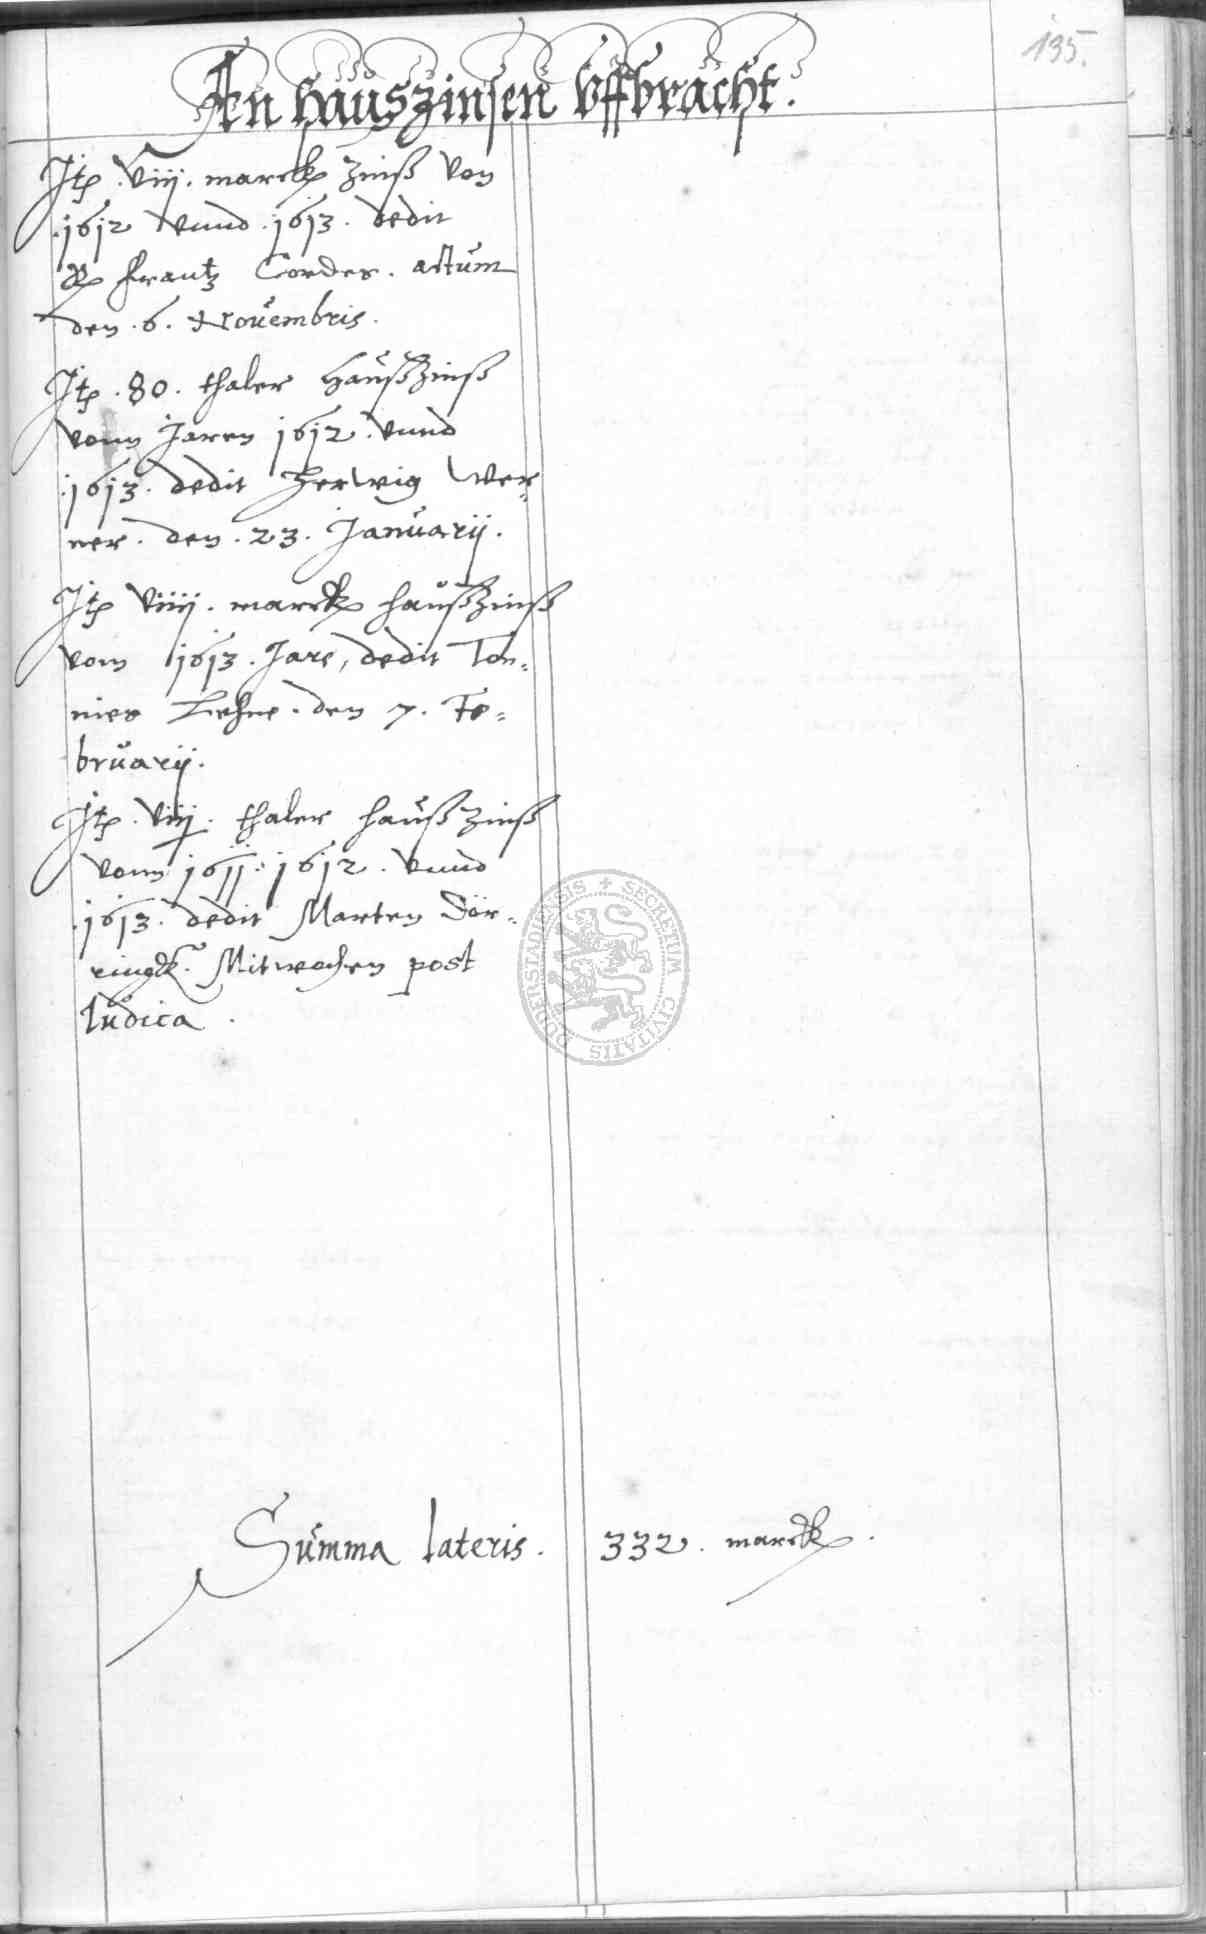 135.
An hauszinsen vffbracht.
Jtem .viij. marck zinß von
.1612 vnnd .1613. dedit
H Frantz Cordes. actum
den .6. Novembris.
Jtem .80. thaler haußzinß
vonn Jaren 1612. vnnd
.1613. dedit Herwig Wer=
ner. den .23. Januarij.
Jtem viiij. marck haußzinß
vom 1613. Jare, dedit Ton=
nies Lehne. den 7. Fe=
bruarij.
Jtem .viij. thaler haußzinß
vonn 1611. 1612. vnnd
.1613. dedit Marten Dör=
ringk. Mitwochen post
Judica.
SECRETUM CIVITATIS DUDERSTADIENSIS
Summa lateris. 332. marck.